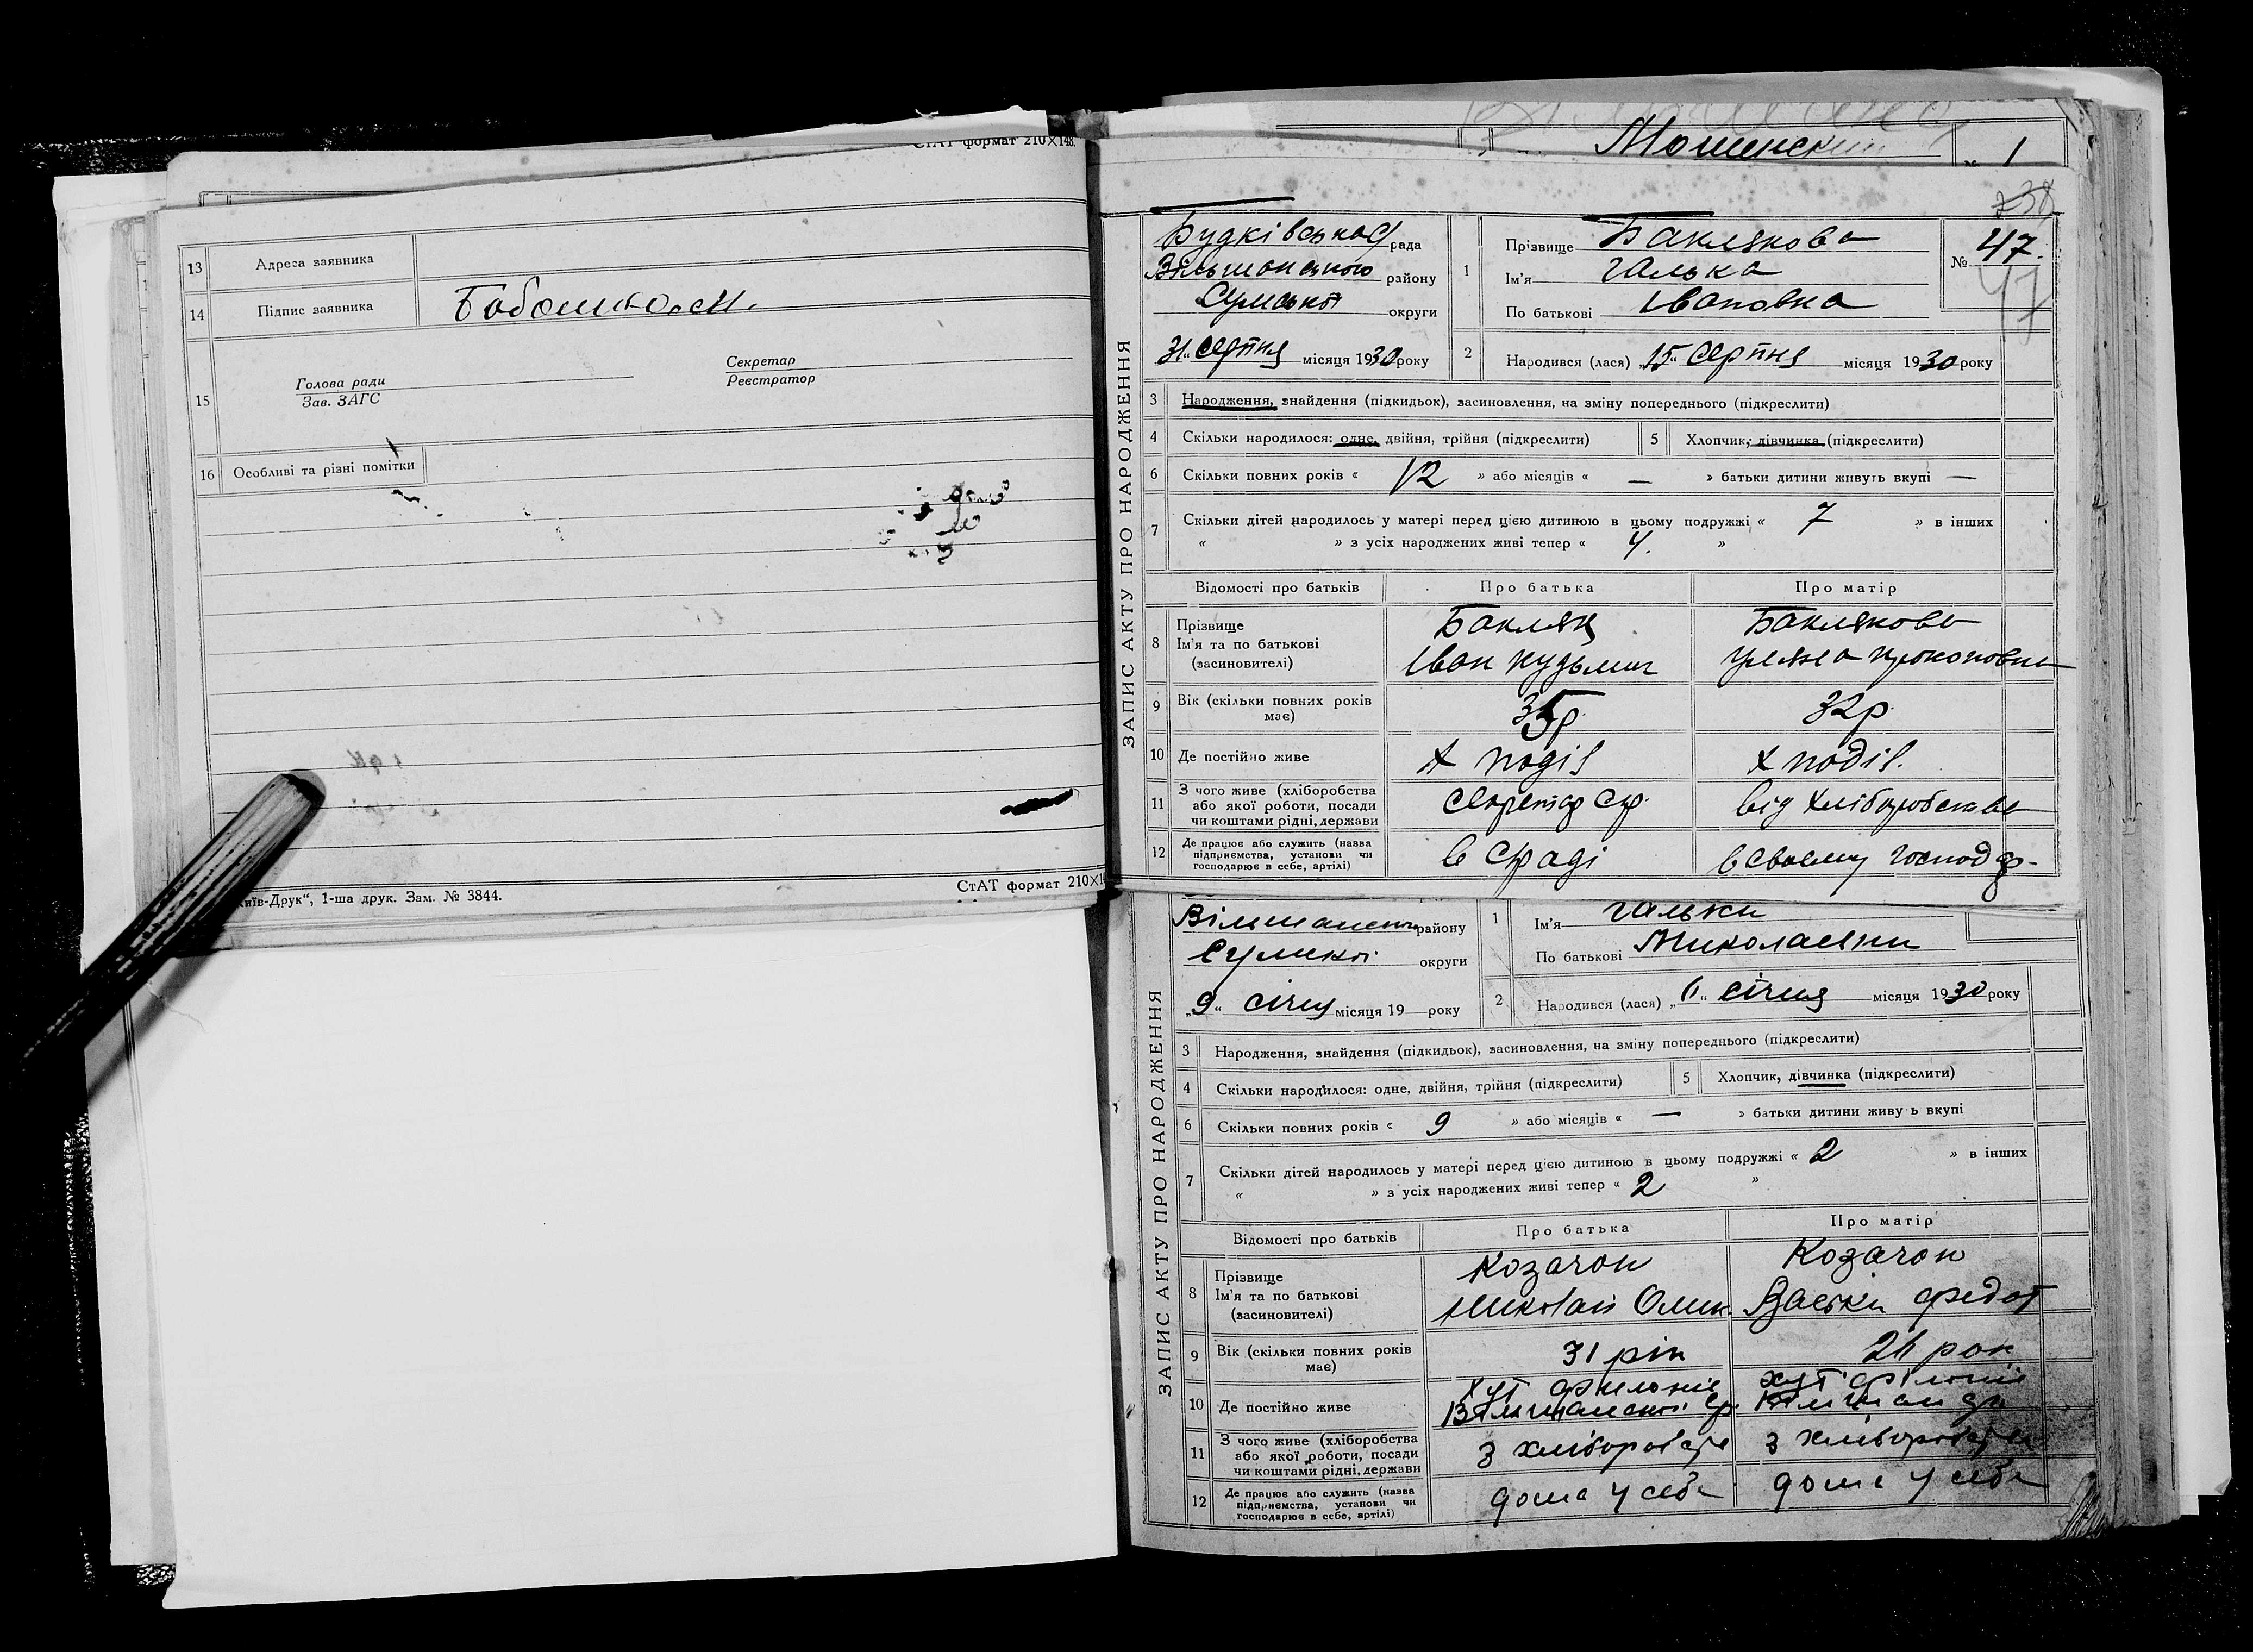 СтАТ формат 210×148.
13 Адреса заявника
14 Підпис заявника
15 Голова ради
Зав. ЗАГС
Секретар
Реєстратор
16 Особливі та різні помітки
Київ-Друк“, 1-ша друк. Зам. № 3844.
СтАТ формат 210×14
№ 1
738
ЗАПИС АКТУ ПРО НАРОДЖЕННЯ
Будківська рада
Вільшанського району
Сумської округи
31 серпня місяця 1930 року
1 Прізвище Баклякова
Ім'я Галька
По батькові Івановна
№ 47.
47
2 Народився (лася) „15“ серпня місяця 1930 року
3 Народження, знайдення (підкидьок), засиновлення, на зміну попереднього (підкреслити)
4 Скільки народилося: одне, двійня, трійня (підкреслити)
5 Хлопчик, дівчинка (підкреслити)
6 Скільки повних років « 12 » або місяців « — » батьки дитини живуть вкупі —
7 Скільки дітей народилось у матері перед цією дитиною в цьому подружжі « 7 » в інших
« » з усіх народжених живі тепер « 4. »
Відомості про батьків Про батька Про матір
8 Прізвище Бакляк Баклякова
Ім'я та по батькові Іван Кузьмич Уляна Прокоповна
(засиновителі)
9 Вік (скільки повних років має) 35р. 32р.
10 Де постійно живе х Поділ х Поділ.
11 З чого живе (хліборобства або якої роботи, посади чи коштами рідні, держави секретар ср. від хліборобства
12 Де працює або служить (назва підприємства, установи чи господарює в себе, артілі) в сраді в своєму господар-
ЗАПИС АКТУ ПРО НАРОДЖЕННЯ
району
Сумської округи
„9“ січня місяця 19 року
1 Ім'я Гальки
По батькові Миколаевни
2 Народився (лася) „ “ січня місяця 1930 року
3 Народження, знайдення (підкидьок), засиновлення, на зміну попереднього (підкреслити)
4 Скільки народилося: одне, двійня, трійня (підкреслити)
5 Хлопчик, дівчинка (підкреслити)
6 Скільки повних років « 9 » або місяців « — » батьки дитини живу ь вкупі
7 Скільки дітей народилось у матері перед цією дитиною в цьому подружжі « 2 » в інших
« » з усіх народжених живі тепер « 2 »
Відомості про батьків Про батька Про матір
8 Прізвище Козачок Козачок
Ім'я та по батькові Миколай Федот
(засиновителі)
9 Вік (скільки повних років має) 31 рік рок
10 Де постійно живе хут хут
11 З чого живе (хліборобства або якої роботи, посади чи коштами рідні, держави з з
12 Де працює або служить (назва підприємства, установи чи господарює в себе, артілі) дома у себе дома у себе